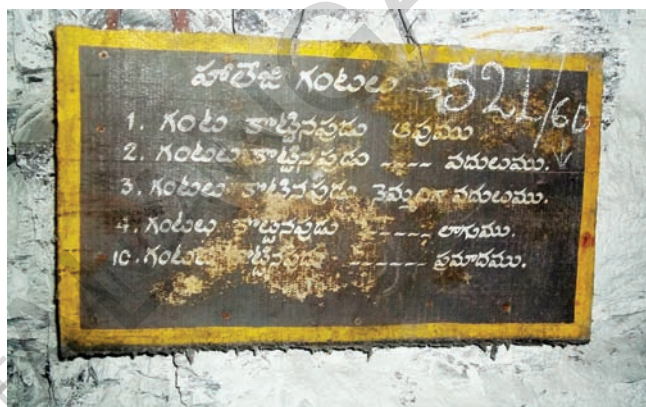 హాలేజి గంటలు → 521/60
1. గంట కొట్టినపుడు ఆపుము
2. గంటలు కొట్టినపుడు ---- వదులుము.
3. గంటలు కొట్టినపుడు నెమ్మదిగా వదులుము.
4. గంటలు కొట్టినపుడు ------ లాగుము.
10. గంటలు కొట్టినపుడు ------- ప్రమాదము.